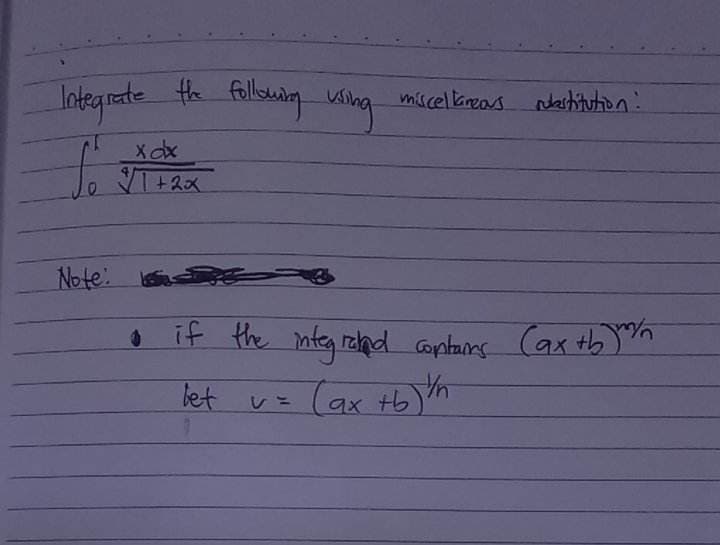 Integrate the following using miscellaneous substitution:
∫₀¹ x dx / ∜1+2x
Note:
• if the integrand contains (ax+b)^m/n
let v = (ax +b)^1/n